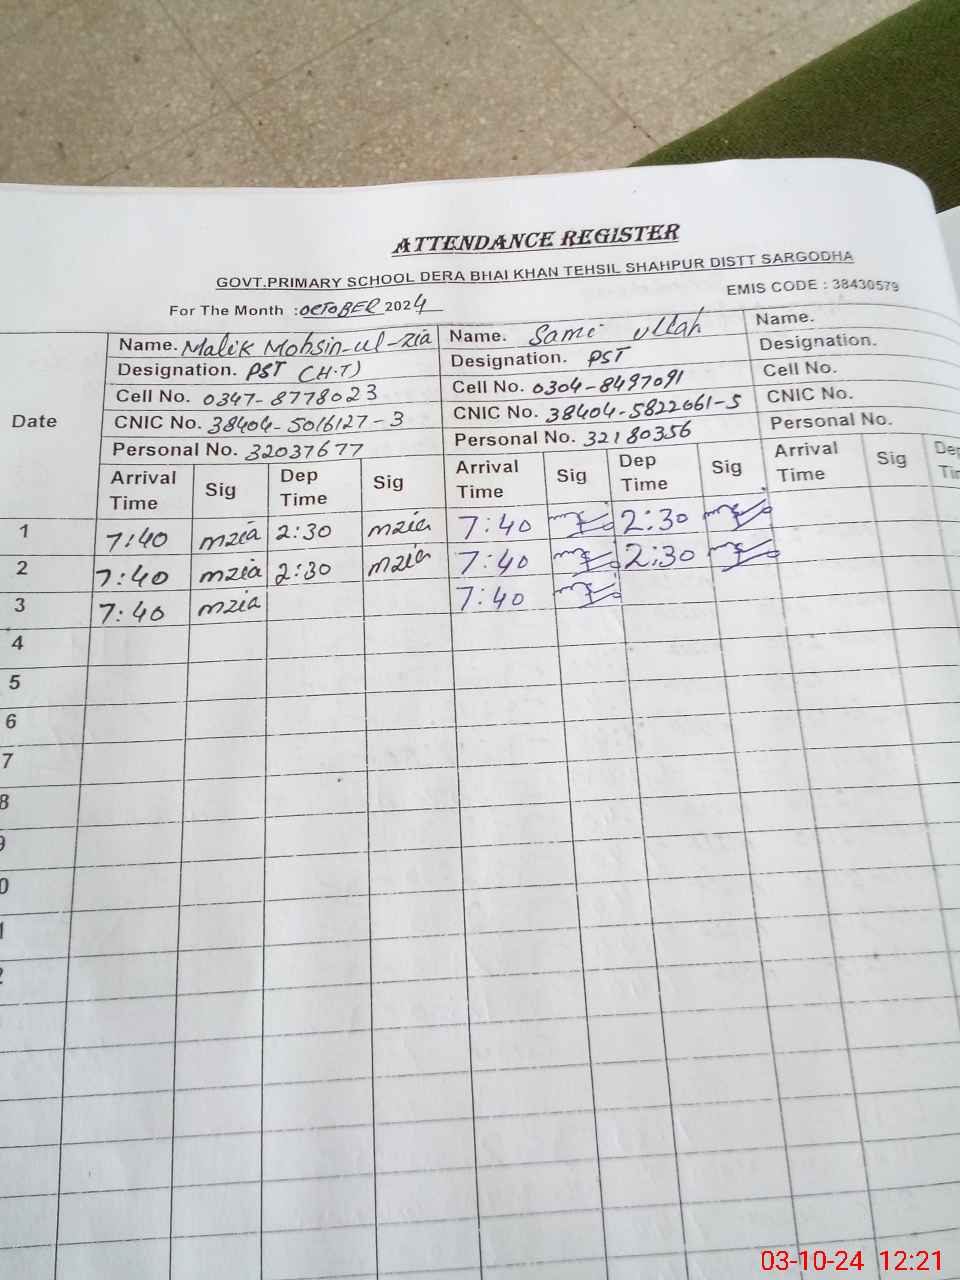 ATTENDANCE REGISTER
GOVT.PRIMARY SCHOOL DERA BHAI KHAN TEHSIL SHAHPUR DISTT SARGODHA
For The Month :OCTOBER 2024 EMIS CODE : 38430579
Name. Malik Mohsin-ul-Zia Name. Sami ullah Name.
Designation. PST (H.T) Designation. PST Designation.
Cell No. 0347-8778023 Cell No. 0304-8497091 Cell No.
Date CNIC No. 38404-5016127-3 CNIC No. 38404-5822661-5 CNIC No.
Personal No. 32037677 Personal No. 32180356 Personal No.
Arrival Time Sig Dep Time Sig Arrival Time Sig Dep Time Sig Arrival Time Sig
1 7:40 mzia 2:30 mzia 7:40 2:30
2 7:40 mzia 2:30 mzia 7:40 2:30
3 7:40 mzia 7:40
4
5
6
7
8
03-10-24 12:21